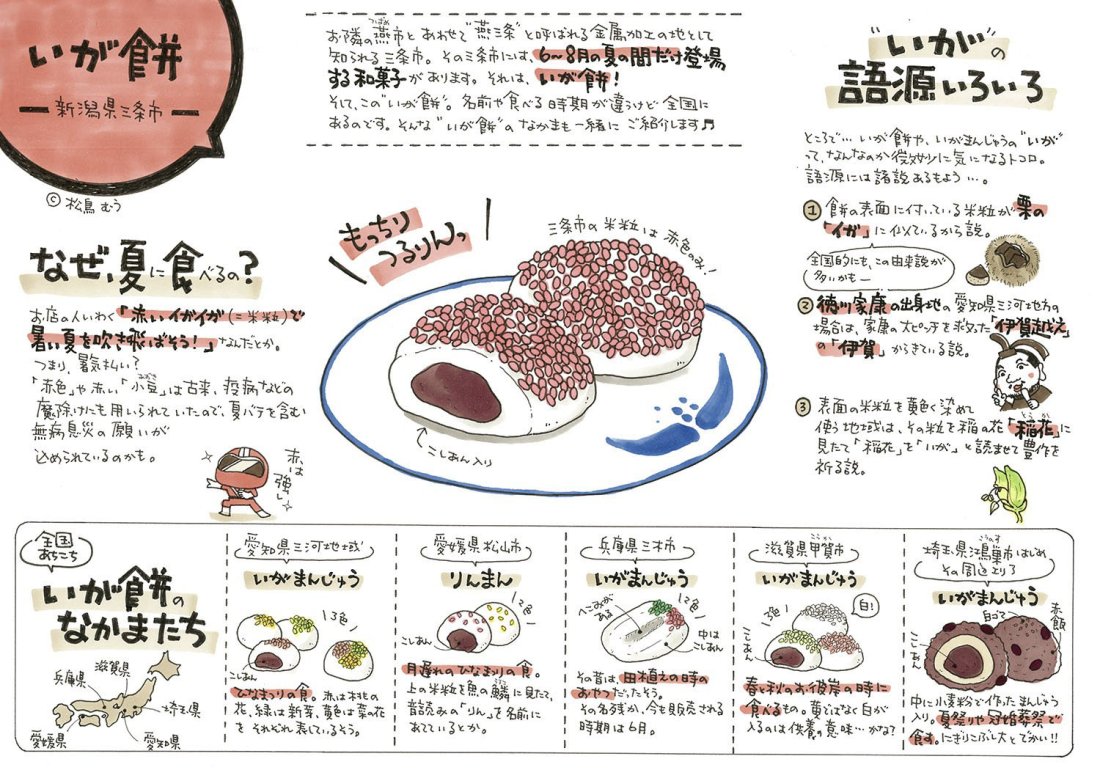 いが餅
新潟県三条市
© 松鳥むう
お隣の燕市とあわせて"燕三条"と呼ばれる金属加工の地として
つばめ
知られる三条市。その三条市には、6〜8月の夏の間だけ登場
する和菓子があります。それは、いが餅！
そして、この"いが餅"。名前や食べる時期が違うけど全国に
あるのです。そんな"いが餅"のなかまも一緒にご紹介します♬
なぜ、夏に食べるの？
お店の人いわく「赤いイガイガ(=米粒)で
暑い夏を吹き飛ばそう！」なんだとか。
つまり、暑気払い？
「赤色」や赤い「小豆」は古来、疫病などの
魔除けにも用いられていたので、夏バテを含む
無病息災の願いが
込められているのかも。
赤は
強し
もっちり
つるりんっ
三条市の米粒は赤色のみ！
こしあん入り
"いが"の
語源いろいろ
ところで…いが餅や、いがまんじゅうの"いが"
って、なんなのか微妙に気になるトコロ。
語源には諸説あるもよう…。
① 餅の表面に付いている米粒が栗の
「イガ」に似ているから説。
全国的にも、この由来説が
多いかもー
② 徳川家康の出身地の愛知県三河地方の
場合は、家康の大ピンチを救った「伊賀越え」
の「伊賀」からきている説。
③ 表面の米粒を黄色く染めて
使う地域は、その粒を稲の花「稲花」に
見たて「稲花」を「いが」と読ませて豊作を
祈る説。
全国
あちこち
いが餅の
なかまたち
滋賀県
兵庫県
埼玉県
愛媛県
愛知県
愛知県三河地域
いがまんじゅう
3色
こしあん
ひなまつりの食。赤は木花の
花、緑は新芽、黄色は菜の花
をそれぞれ表しているそう。
愛媛県松山市
りんまん
2色
こしあん
月遅れのひなまつりの食。
上の米粒を魚の鱗に見たて、
音読みの「りん」を名前に
あてているとか。
兵庫県三木市
いがまんじゅう
へこみが
ある
2色
中は
こしあん
その昔は、田植えの時の
おやつだったそう。
その名残か、今も販売される
時期は6月。
滋賀県甲賀市
こうか
いがまんじゅう
3色
白！
こしあん
春と秋のお彼岸の時に
食べるもの。黄ではなく白が
入るのは供養の意味…かな？
埼玉県鴻巣市はじめ
こうのす
その周辺より
いがまんじゅう
白ゴマ
赤飯
こしあん
中に小麦粉で作ったまんじゅう
入り。夏祭りや冠婚葬祭で
食す。にぎりこぶし大とでかい!!